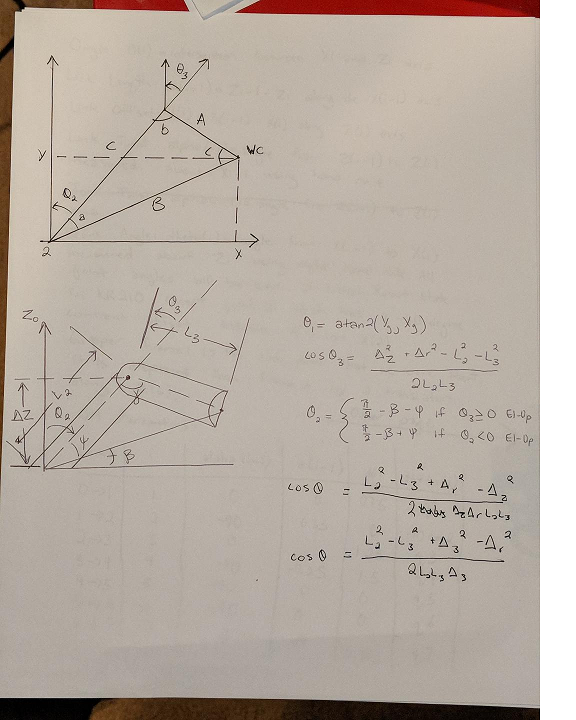 θ3
A
b
C
c
WC
y
θ2
a
B
2
X
Z0
θ3
L3
ΔZ
L2
θ2
ψ
β
θ1 = atan2(yg, xg)
cos θ3 = (ΔZ^2 + Δr^2 - L2^2 - L3^2) / 2L2L3
θ2 = { π/2 - β - ψ if θ3 ≥ 0 El-Up
π/2 - β + ψ if θ2 < 0 El-Up
cos θ = (L2^2 - L3^2 + Δr^2 - Δz^2) / 2 Δz Δr L2L3
cos θ = (L2^2 - L3^2 + Δ3^2 - Δr^2) / 2L2L3 Δ3